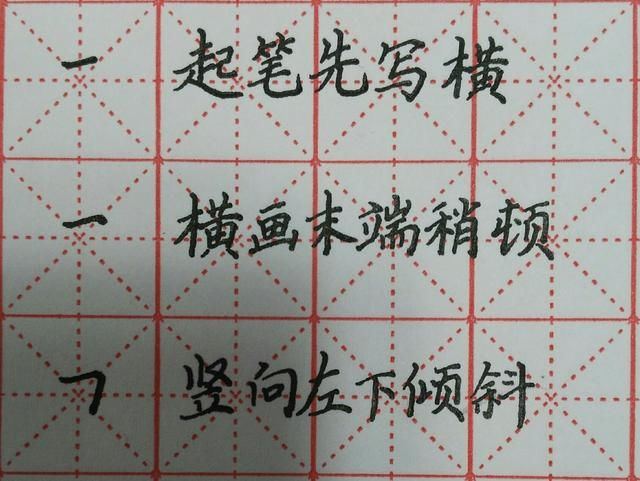 一 起笔先写横
一 横画末端稍顿
𠃍 竖向左下倾斜